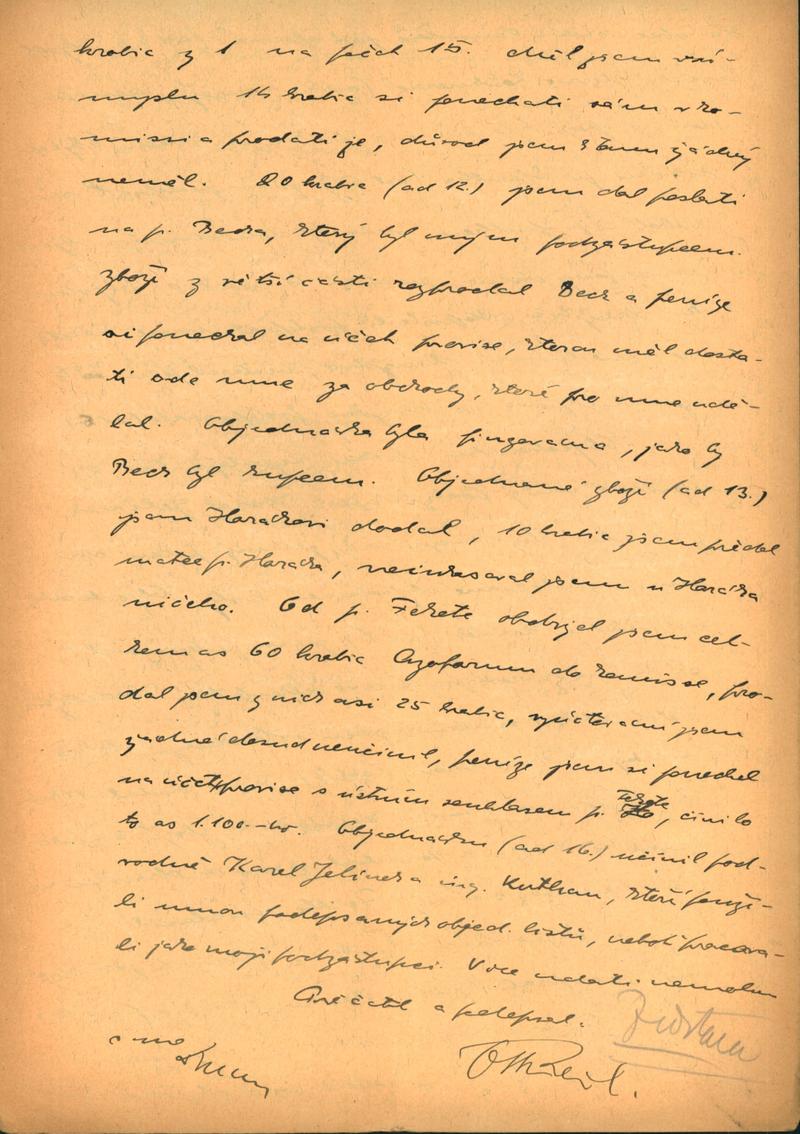 krabic z 1 na všech 15. Měl jsem v ú-
myslu 14 krabic si ponechati sám v ko-
missi a prodati je, důvod jsem k tomu žádný
neměl. 20 krabic (ad 12.) jsem dal poslati
na p. Becka, který byl mým podzástupcem.
Zboží z větší části rozprodal Beck a peníze
si ponechal na účet provise, kterou měl dosta-
ti ode mne za obchody, které pro mne udě-
lal. Objednávka byla fingovaná, jako by
Beck byl kupcem. Objednané zboží (ad 13.)
jsem Horáčkovi dodal, 10 krabic jsem předal
matce p. Horáčka, neinkasoval jsem u Horáčka
ničeho. Od p. Fekete obdržel jsem cel-
kem as 60 krabic Azoformu do komisse, pro-
dal jsem z nich asi 25 krabic, vyúčtování jsem
žádné dosud neučinil, peníze jsem si ponechal
na účet provise s ústním souhlasem p. Fekete, činilo
to as 1.100.- kor. Objednávku (ad 16.) učinil pod-
vodně Karel Jelínek a ing. Kuthan, kteří použi-
li mnou podepsaných objed. listů, neboť pracova-
li jako moji podzástupci. Více udati nemohu
Přečetl a podepsal.